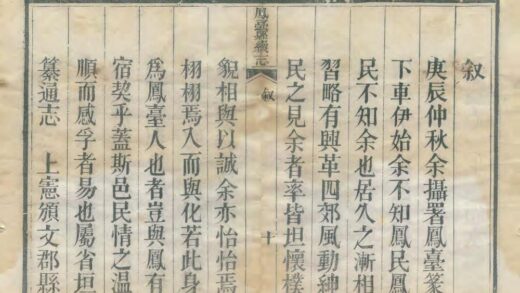 叙
庚辰仲秋余攝署鳳臺篆
下車伊始余不知鳳民鳳
民不知余也居久之漸相
習略有興革四郊風動紳
民之見余者率皆坦懷樸
鳳臺縣續志 叙 十
貌相與以誠余亦怡怡焉
栩栩焉入而與化若此身
爲鳳臺人也者豈與鳳有
宿契乎蓋斯邑民情之温
順而感孚者易也屬省垣
纂通志 上憲頒文郡縣